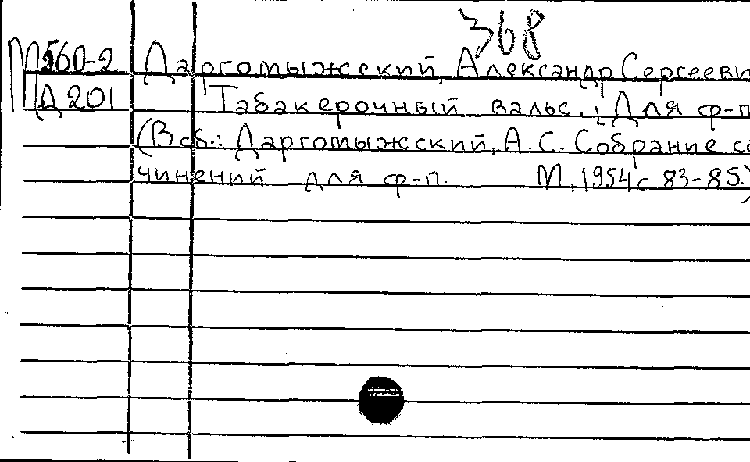 368
М560-2 Даргомыжский, Александр Сергееви
Д 201 Табакерочный вальс.; Для ф-п
(В сб.: Даргомыжский, А.С. Собрание со
чинений для ф-п. М., 1954 с 83-85.)